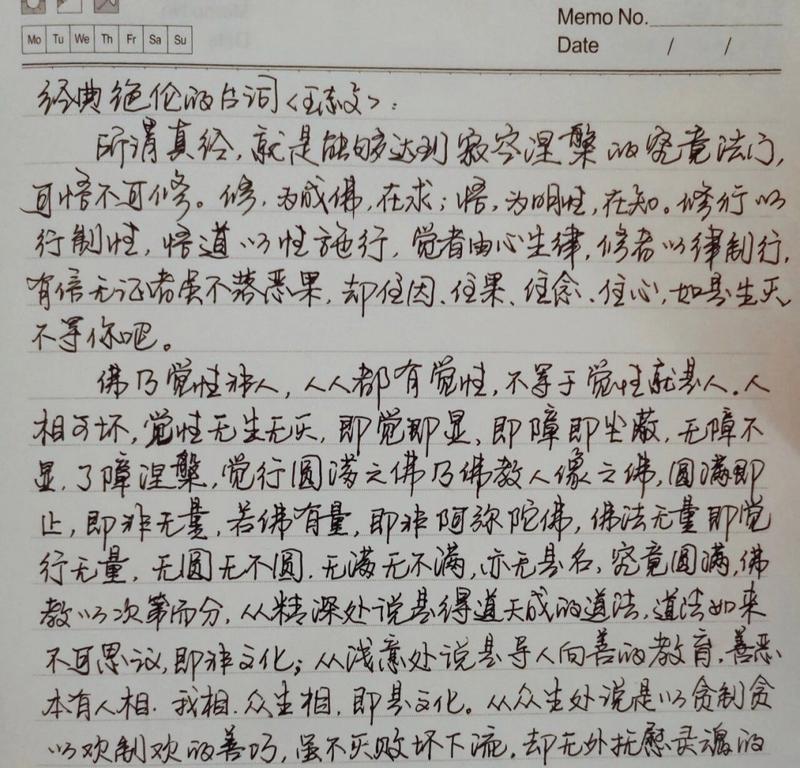 Memo No.
Mo Tu We Th Fr Sa Su
Date / /
经典绝伦的台词<王志文>:
所谓真经,就是能够达到寂空涅槃的究竟法门,
可悟不可修。修,为成佛,在求;悟,为明性,在知。修行以
行制性,悟道以性施行,觉者由心生律,修者以律制行,
有信无证者虽不落恶果,却住因、住果、住念、住心,如是生灭
不等你吧。
佛乃觉性非人,人人都有觉性,不等于觉性就是人.人
相可坏,觉性无生无灭,即觉即显、即障即尘蔽,无障不
显.了障涅槃,觉行圆满之佛乃佛教人像之佛,圆满即
止,即非无量,若佛有量,即非阿弥陀佛,佛法无量即觉
行无量,无圆无不圆.无满无不满,亦无是名,究竟圆满,佛
教以次第而分,从精深处说是得道天成的道法,道法如来
不可思议,即非文化;从浅意处说是导人向善的教育.善恶
本有人相.我相.众生相,即是文化。从众生处说是以贪制贪
以欢制欢的善巧,虽不灭败坏下流,却无外抚慰灵魂的